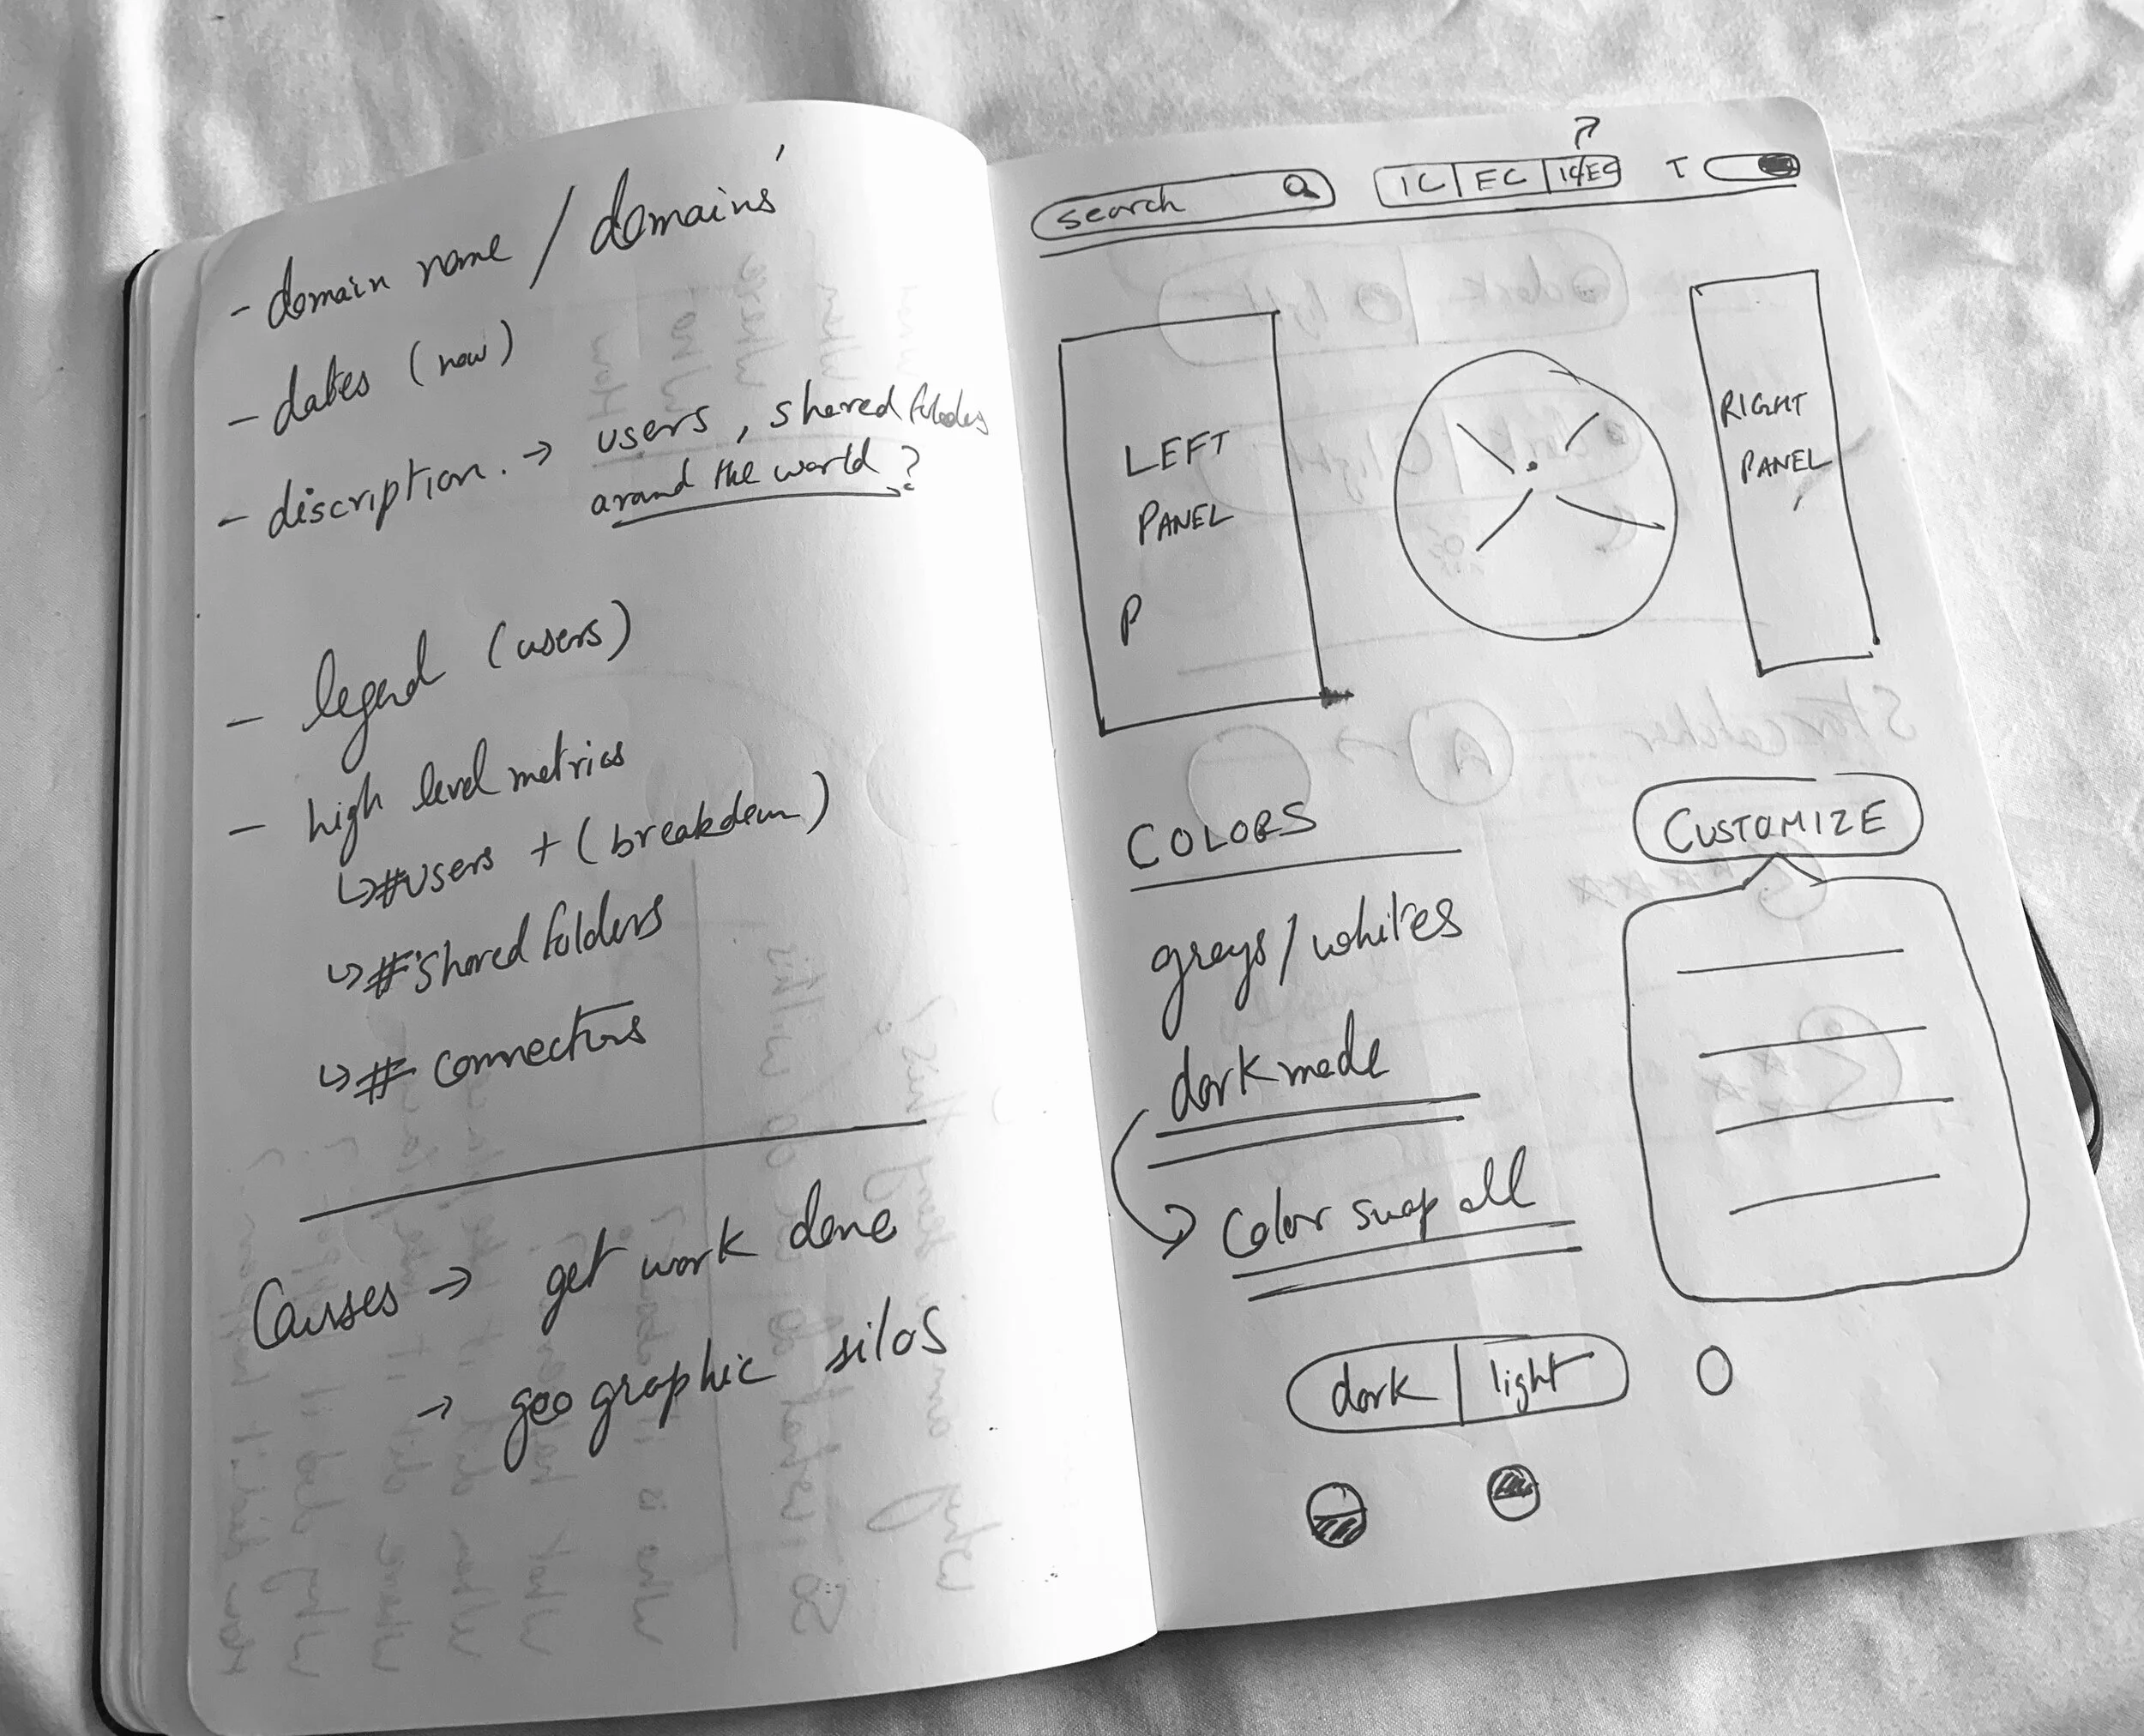 - domain name / domains
- dates (now)
- discription. → users, shared folders
around the world?
- legend (users)
- high level metrics
↳ #users + (breakdown)
↳ # shared folders
↳ # connections
Causes → get work done
→ geographic silos
search
IC | EC | IC/EC
T
LEFT
PANEL
P
RIGHT
PANEL
COLORS
greys/whites
dark mode
color swap all
dark | light
CUSTOMIZE